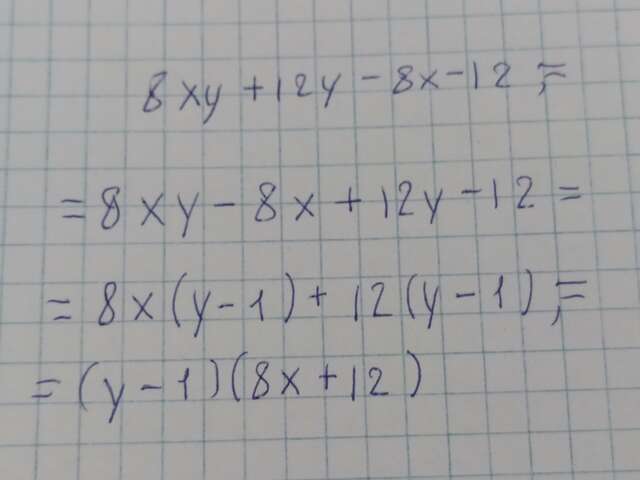 8xy+12y-8x-12,=
=8xy-8x+12y-12=
=8x(y-1)+12(y-1),=
=(y-1)(8x+12)